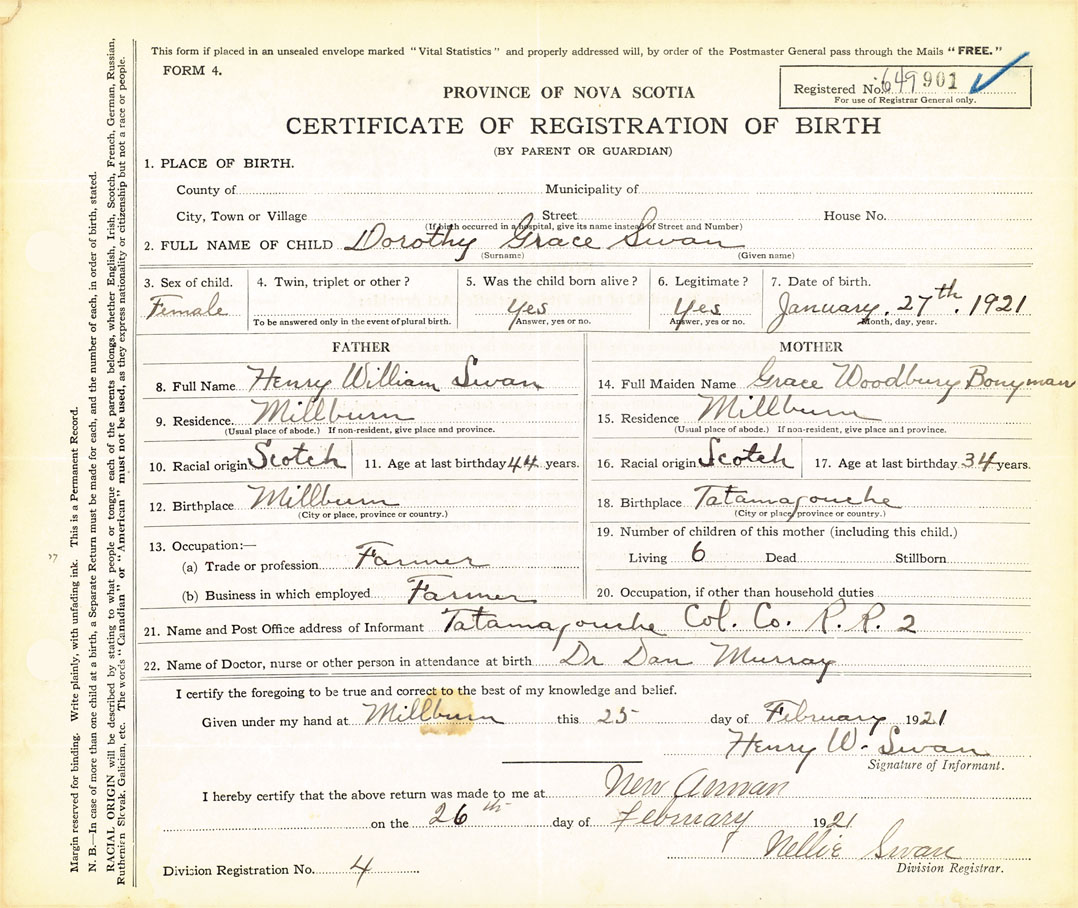 This form if placed in an unsealed envelope marked "Vital Statistics" and properly addressed will, by order of the Postmaster General pass through the Mails "FREE."
FORM 4.
Registered No. 649901
For use of Registrar General only.
PROVINCE OF NOVA SCOTIA
CERTIFICATE OF REGISTRATION OF BIRTH
(BY PARENT OR GUARDIAN)
1. PLACE OF BIRTH.
County of Municipality of
City, Town or Village Street House No.
(If birth occurred in a hospital, give its name instead of Street and Number)
2. FULL NAME OF CHILD Dorothy Grace Swan
(Surname) (Given name)
3. Sex of child. 4. Twin, triplet or other? 5. Was the child born alive? 6. Legitimate? 7. Date of birth.
Female Yes Yes January. 27th. 1921
To be answered only in the event of plural birth. Answer, yes or no. Answer, yes or no. Month, day, year.
FATHER
8. Full Name Henry William Swan
9. Residence. Millburn
(Usual place of abode.) If non-resident, give place and province.
10. Racial origin Scotch 11. Age at last birthday 44 years.
12. Birthplace Millburn
(City or place, province or country.)
13. Occupation:—
(a) Trade or profession Farmer
(b) Business in which employed Farmer
MOTHER
14. Full Maiden Name Grace Woodbury Bonyman
15. Residence Millburn
(Usual place of abode.) If non-resident, give place and province.
16. Racial origin Scotch 17. Age at last birthday 34 years.
18. Birthplace Tatamagouche
(City or place, province or country.)
19. Number of children of this mother (including this child.)
Living 6 Dead Stillborn
20. Occupation, if other than household duties
21. Name and Post Office address of Informant Tatamagouche Col. Co. R.R. 2
22. Name of Doctor, nurse or other person in attendance at birth Dr Dan Murray
I certify the foregoing to be true and correct to the best of my knowledge and belief.
Given under my hand at Millburn this 25 day of February 1921
Henry W. Swan
Signature of Informant.
I hereby certify that the above return was made to me at New Annan
on the 26th day of February 1921
Nellie Swan
Division Registrar.
Division Registration No. 4
Margin reserved for binding. Write plainly, with unfading ink. This is a Permanent Record.
N. B.—In case of more than one child at a birth, a Separate Return must be made for each, and the number of each, in order of birth, stated.
RACIAL ORIGIN will be described by stating to what people or tongue each of the parents belongs, whether English, Irish, Scotch, French, German, Russian,
Ruthenian Slovak, Galician, etc. The words "Canadian" or "American" must not be used, as they express nationality or citizenship but not a race or people.